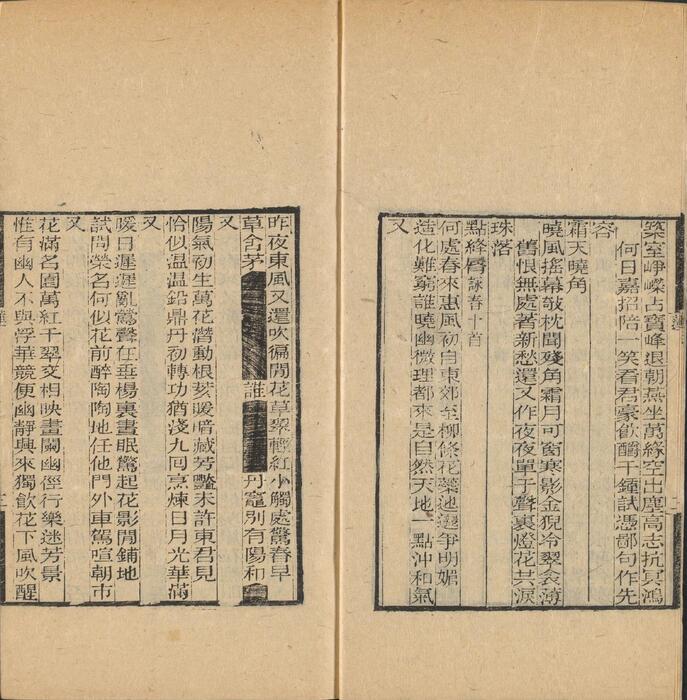 築室崢嶸占寶峰退朝燕坐萬緣空出塵高志抗冥鴻
何日嘉招陪一笑看君豪飲釂千鍾試憑鄙句作先
容
霜天曉角
曉風搖幕欹枕聞殘角霜月可窗寒影金猊冷翠衾薄
舊恨無處著新愁還又作夜夜單于聲裏燈花共淚
珠落
點絳脣詠春十首
何處春來惠風初自東郊至柳條花蘂迤邐爭明媚
造化難窮誰曉幽微理都來是自然天地一點沖和氣
又
昨夜東風又還吹徧閒花草翠輕紅小觸處驚春早
草舍茅 誰 丹竈別有陽和
又
陽氣初生萬花潛動根荄暖暗藏芳豔未許東君見
恰似温温鉛鼎丹初轉功猶淺九回烹煉日月光華滿
又
暖日遲遲亂鶯聲在垂楊裏晝眠驚起花影閒鋪地
試問榮名何似花前醉陶陶地任他門外車駕喧朝市
又
花滿名園萬紅千翠交相映晝闌幽徑行樂迷芳景
惟有幽人不與浮華競便幽靜興來獨飲花下風吹醒